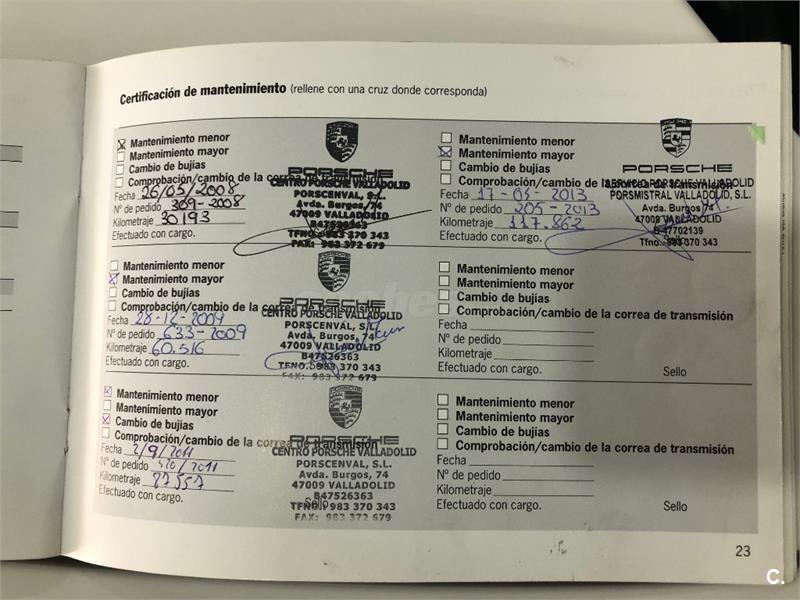 Certificación de mantenimiento (rellene con una cruz donde corresponda)
Mantenimiento menor
Mantenimiento mayor
Cambio de bujías
Comprobación/cambio de la correa de transmisión
Fecha 26/05/2008
Nº de pedido 369-2008
Kilometraje 30.193
Efectuado con cargo.
PORSCHE
CENTRO PORSCHE VALLADOLID
PORSCENVAL, S.L.
Avda. Burgos, 74
47009 VALLADOLID
B47526363
TFNO.: 983 370 343
FAX: 983 372 679
Mantenimiento menor
Mantenimiento mayor
Cambio de bujías
Comprobación/cambio de la correa de transmisión
Fecha 28-12-2009
Nº de pedido 633-2009
Kilometraje 60.516
Efectuado con cargo.
PORSCHE
CENTRO PORSCHE VALLADOLID
PORSCENVAL, S.L.
Avda. Burgos, 74
47009 VALLADOLID
B47526363
TFNO.: 983 370 343
FAX: 983 372 679
Mantenimiento menor
Mantenimiento mayor
Cambio de bujías
Comprobación/cambio de la correa de transmisión
Fecha 2/9/2011
Nº de pedido /2011
Kilometraje 87557
Efectuado con cargo.
Sello
PORSCHE
CENTRO PORSCHE VALLADOLID
PORSCENVAL, S.L.
Avda. Burgos, 74
47009 VALLADOLID
B47526363
TFNO.: 983 370 343
FAX: 983 372 679
Mantenimiento menor
Mantenimiento mayor
Cambio de bujías
Comprobación/cambio de la correa de transmisión
Fecha 17-05-2013
Nº de pedido 205-2013
Kilometraje 117.862
Efectuado con cargo.
Sello
PORSCHE
SERVICIO PORSCHE VALLADOLID
PORSMISTRAL VALLADOLID, S.L.
Avda. Burgos 74
47009 VALLADOLID
B-47702139
Tfno. 983 370 343
Mantenimiento menor
Mantenimiento mayor
Cambio de bujías
Comprobación/cambio de la correa de transmisión
Fecha
Nº de pedido
Kilometraje
Efectuado con cargo.
Sello
Mantenimiento menor
Mantenimiento mayor
Cambio de bujías
Comprobación/cambio de la correa de transmisión
Fecha
Nº de pedido
Kilometraje
Efectuado con cargo.
Sello
23
C.